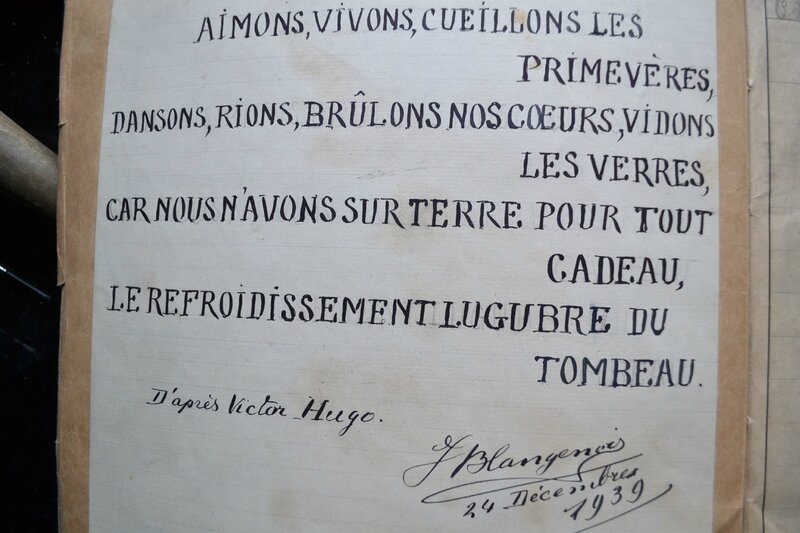 AIMONS, VIVONS, CUEILLONS LES
PRIMEVÈRES,
DANSONS, RIONS, BRÛLONS NOS CŒURS, VIDONS
LES VERRES,
CAR NOUS N'AVONS SUR TERRE POUR TOUT
CADEAU,
LE REFROIDISSEMENT LUGUBRE DU
TOMBEAU.
D'après Victor Hugo.
J Blangenois
24 Décembres
1939